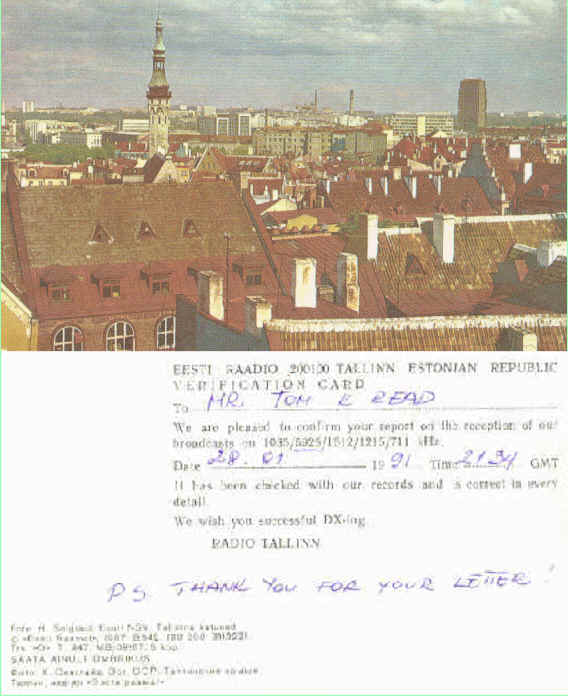 EESTI RAADIO 200100 TALLINN ESTONIAN REPUBLIC
VERIFICATION CARD
To MR. TOM R READ
We are pleased to confirm your report on the reception of our
broadcasts on 1035/5925/1512/1215/711 kHz.
Date 28.01 1991. Time 2134 GMT
It has been checked with our records and is correct in every
detail.
We wish you successful DX-ing
RADIO TALLINN
PS. THANK YOU FOR YOUR LETTER!
Foto: Eesti NSV. Tallinna katused
© «Eesti Raamat», 1987.
SAATA AINULT ÜMBRIKUS
Фото:
Таллин,